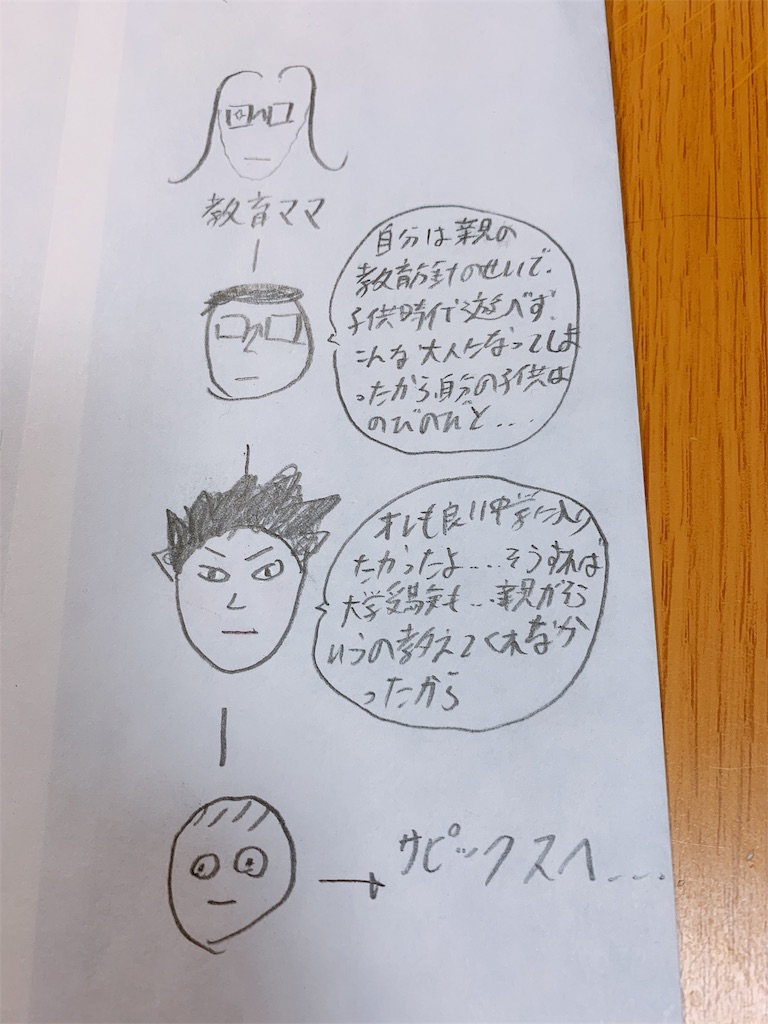 教育ママ
自分は親の
教育方針のせいで、
子供時代遊べず、
こんな大人になってしま
ったから、自分の子供は
のびのびと....
オレも良い中学に入り
たかったよ....そうすれば
大学受験も...親がそう
いうの教えてくれなか
ったから
サピックスへ....